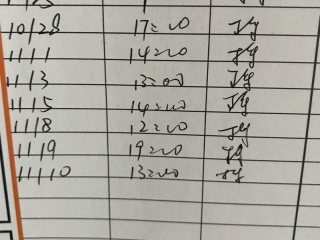 10/28 17:00 Jy
11/1 14:20 Jy
11/3 13:00 Jy
11/5 14:00 Jy
11/8 12:00 Jy
11/9 19:20 Jy
11/10 13:00 Jy